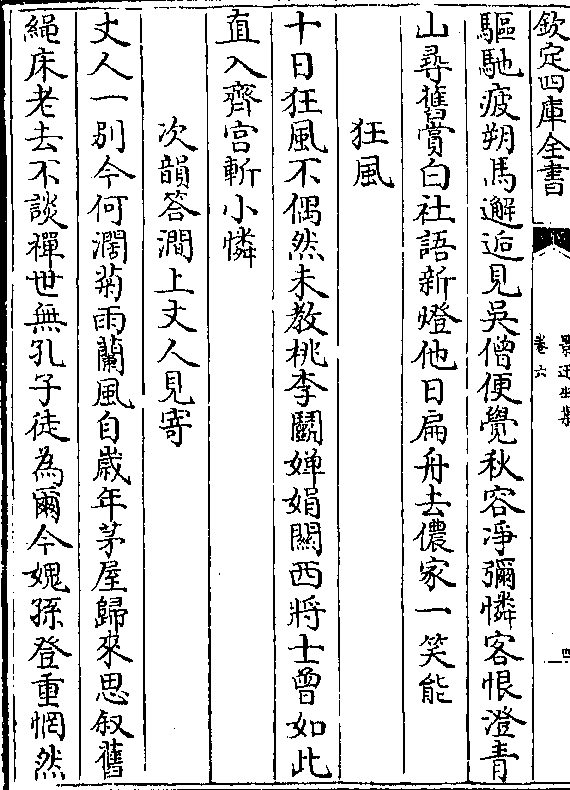 欽定四庫全書
景迂生集
卷六
四
驅馳疲朔馬邂逅見吳僧便覺秋容凈彌憐客恨澄青
山尋舊賞白社語新燈他日扁舟去儂家一笑能
狂風
十日狂風不偶然未教桃李鬭嬋娟關西將士曾如此
直入齊宫斬小憐
次韻答澗上丈人見寄
丈人一別今何濶菊雨蘭風自歲年茅屋歸來思叙舊
繩床老去不談禪世無孔子徒為爾今媿孫登重惘然